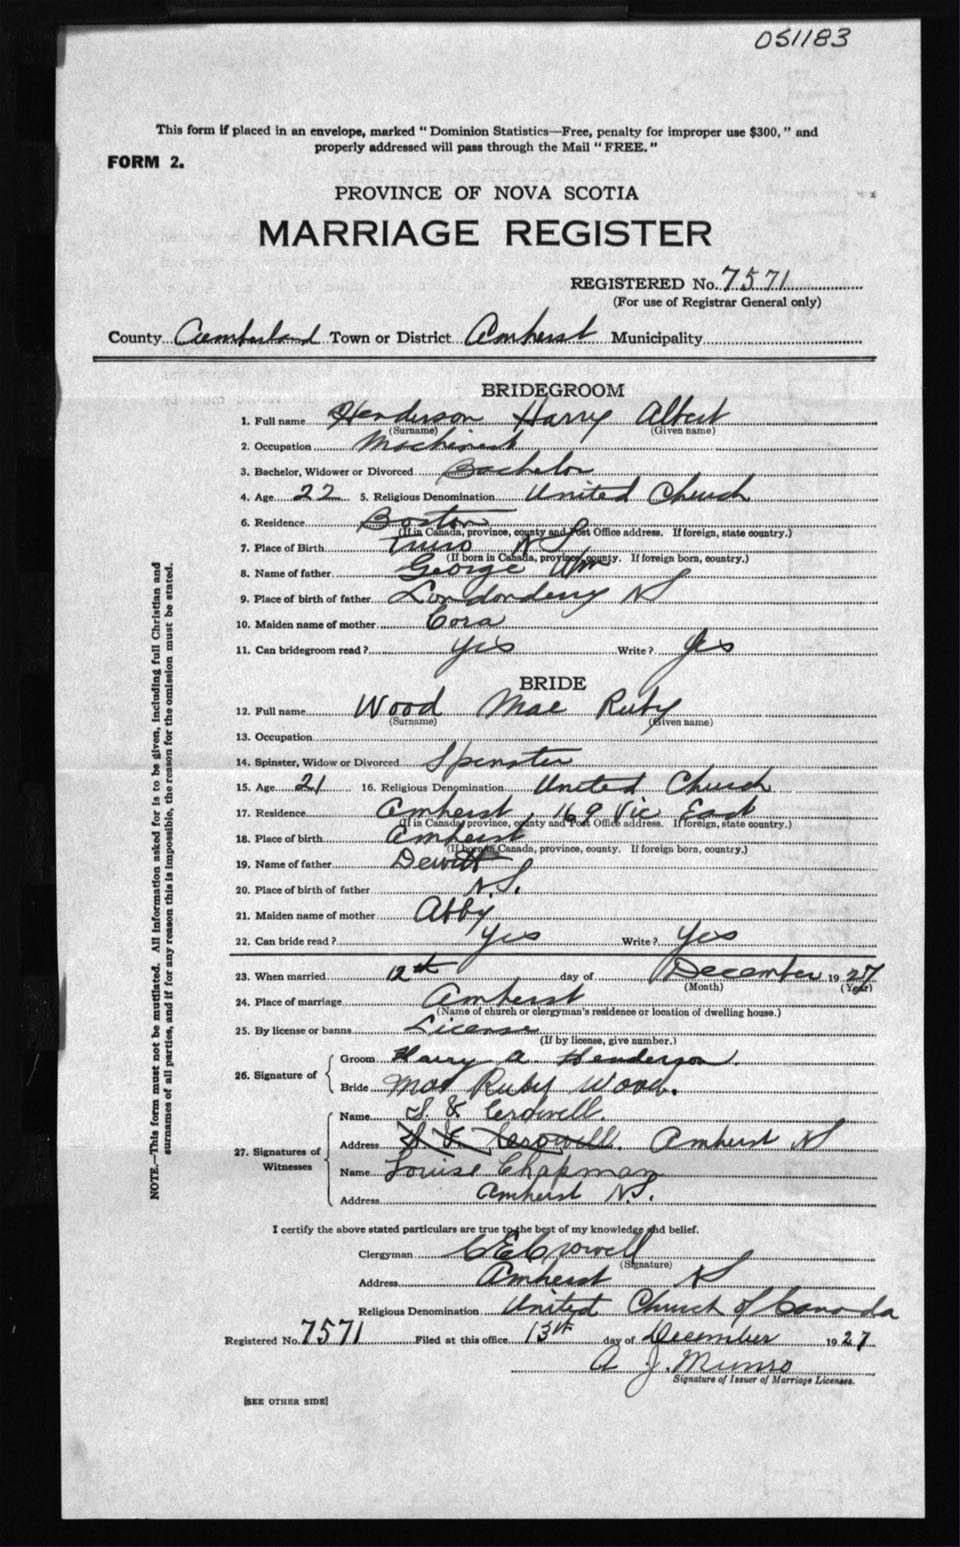 051183
This form if placed in an envelope, marked " Dominion Statistics—Free, penalty for improper use $300, " and
properly addressed will pass through the Mail " FREE. "
FORM 2.
PROVINCE OF NOVA SCOTIA
MARRIAGE REGISTER
REGISTERED No. 7571
(For use of Registrar General only)
County Cumberland Town or District Amherst Municipality
BRIDEGROOM
1. Full name Henderson Harry Albert
(Surname) (Given name)
2. Occupation Machinest
3. Bachelor, Widower or Divorced Bachelor
4. Age 22 5. Religious Denomination United Church
6. Residence Boston
(If in Canada, province, county and Post Office address. If foreign, state country.)
7. Place of Birth Truro N S
(If born in Canada, province, county. If foreign born, country.)
8. Name of father George Wm
9. Place of birth of father Londonderry N S
10. Maiden name of mother Cora
11. Can bridegroom read? yes Write? yes
BRIDE
12. Full name Wood Mae Ruby
(Surname) (Given name)
13. Occupation
14. Spinster, Widow or Divorced Spinster
15. Age 21 16. Religious Denomination United Church
17. Residence Amherst, 169 Vic East
(If in Canada, province, county and Post Office address. If foreign, state country.)
18. Place of birth Amherst
(If born in Canada, province, county. If foreign born, country.)
19. Name of father Dewitt
20. Place of birth of father N.S.
21. Maiden name of mother Abby
22. Can bride read? Yes Write? Yes
23. When married 12th day of December 1927
(Month) (Year)
24. Place of marriage Amherst
(Name of church or clergyman's residence or location of dwelling house.)
25. By license or banns License
(If by license, give number.)
26. Signature of
Groom Harry A Henderson.
Bride Mae Ruby Wood.
27. Signatures of Witnesses
Name Crowell.
Address Crowell. Amherst N S
Name Louise Chapman
Address Amherst N.S.
I certify the above stated particulars are true to the best of my knowledge and belief.
Clergyman C E Crowell
(Signature)
Address Amherst N S
Religious Denomination United Church of Canada
Registered No. 7571 Filed at this office 13th day of December 1927
A J. Munro
Signature of Issuer of Marriage Licenses.
[SEE OTHER SIDE]
NOTE.—This form must not be mutilated. All information asked for is to be given, including full Christian and
surnames of all parties, and if for any reason this is impossible, the reason for the omission must be stated.